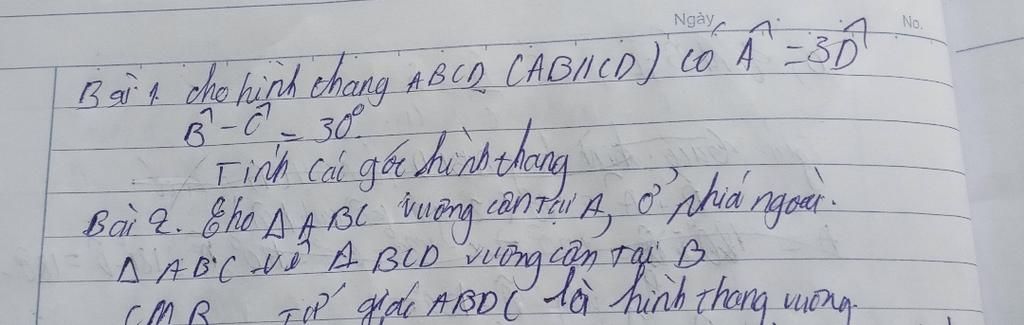 Ngày No.
Bài 1. cho hình thang ABCD (AB//CD) có Â = 3D̂
B̂ - Ĉ = 30°.
Tính các góc hình thang
Bài 2. Cho Δ ABC vuông cân tại A, ở phía ngoài.
Δ ABC vẽ Δ BCD vuông cân tại B
CMR tứ giác ABDC là hình thang vuông.